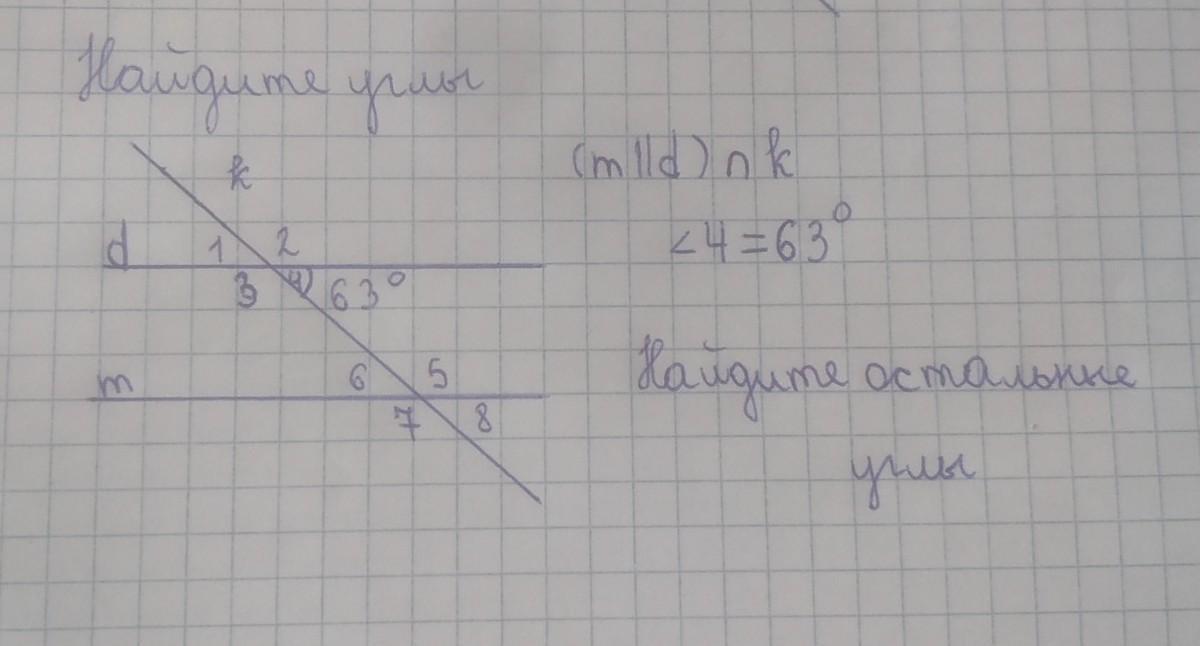 Найдите углы
k
(m||d) ∩ k
d 1 2
<4=63°
3 4 63°
m 6 5
Найдите остальные
7 8
углы